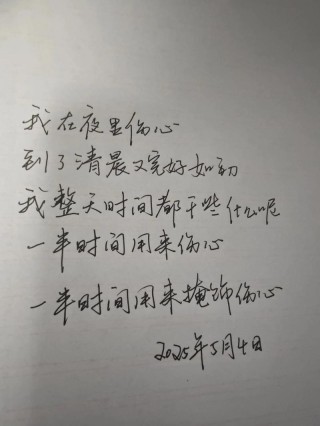 我在夜里伤心
到了清晨又完好如初
我整天时间都干些什么呢
一半时间用来伤心
一半时间用来掩饰伤心
2025年5月4日